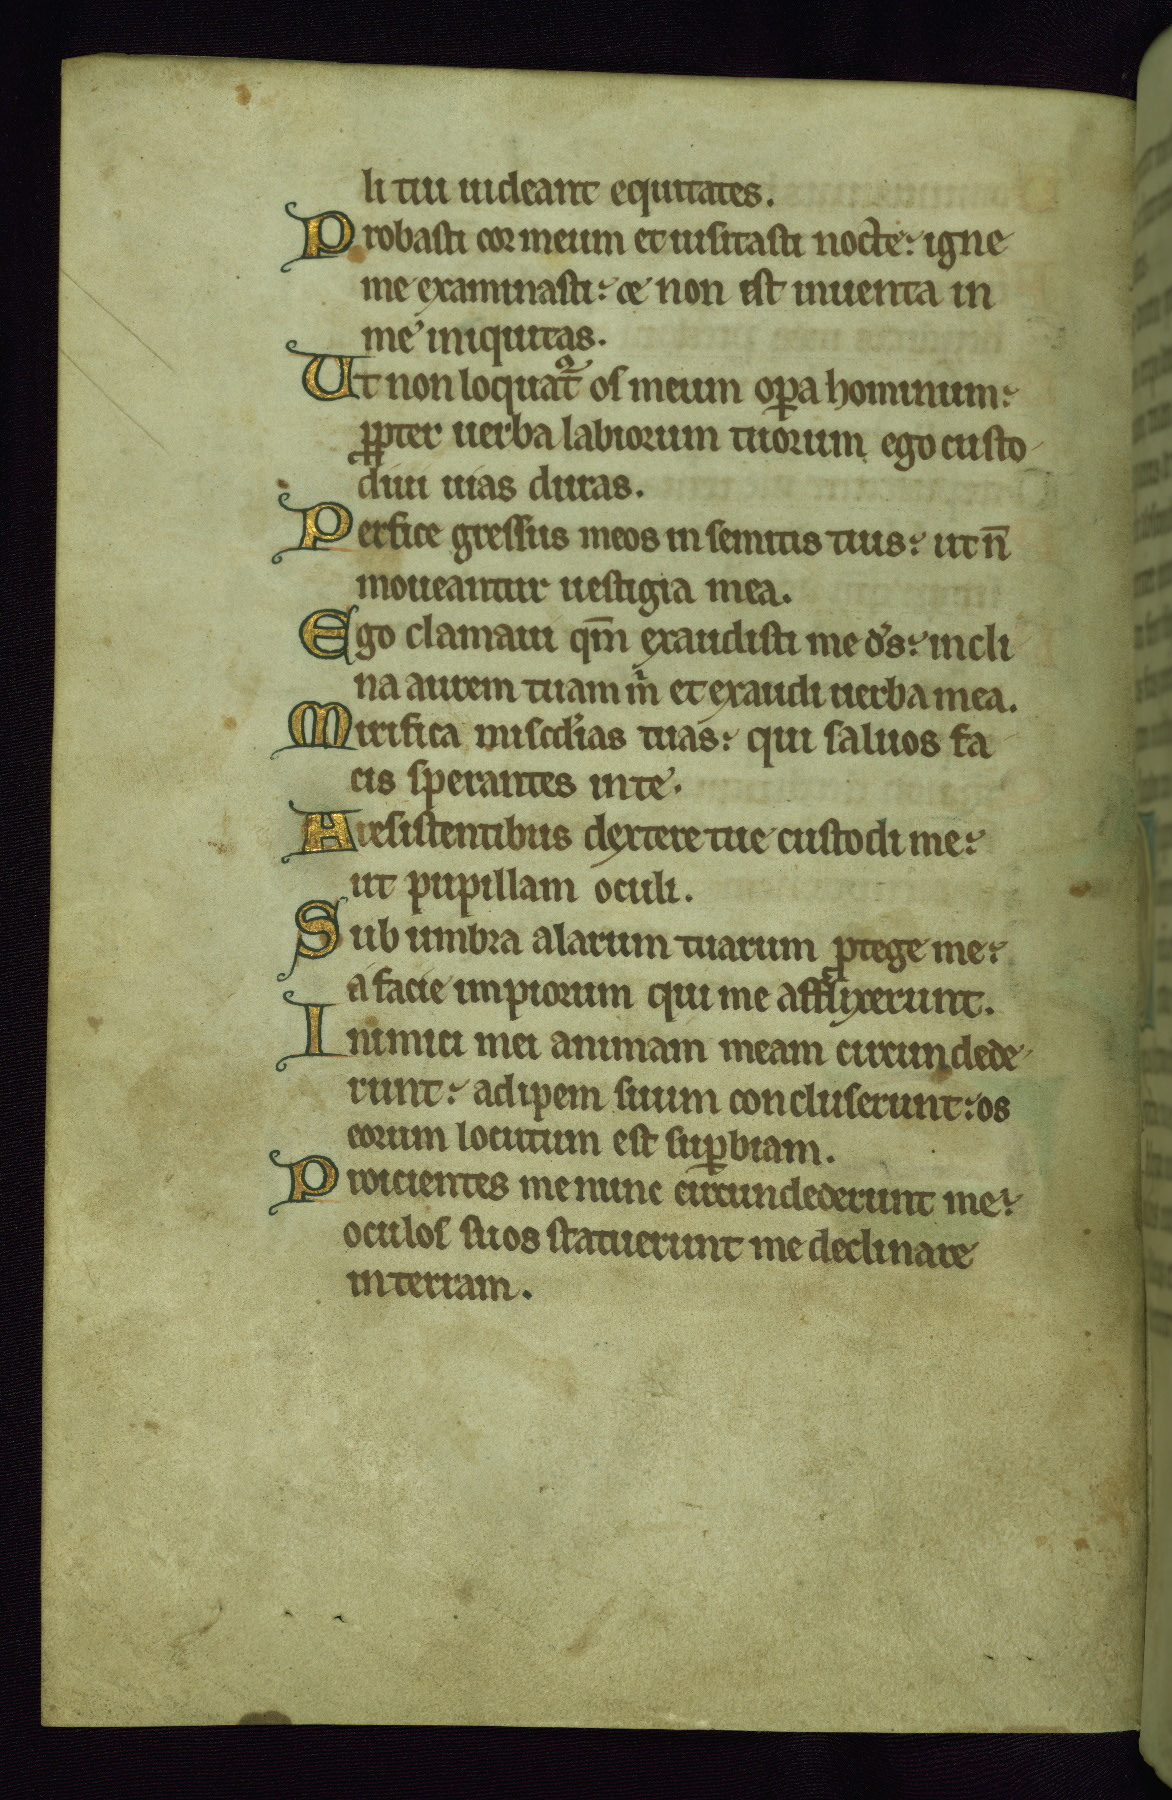 li tui uideant equitates.
Probasti cor meum et uisitasti nocte: igne
me examinasti: & non est inuenta in
me iniquitas.
Ut non loquat᷑ os meum oꝑa hominum:
ꝓpter uerba labiorum tuorum ego custo
diui uias duras.
Perfice gressus meos in semitis tuis: ut n̄
moueantur uestigia mea.
Ego clamaui qm̄ exaudisti me ds̄: incli
na aurem tuam m̄ et exaudi uerba mea.
Mirifica misc̄dias tuas: qui saluos fa
cis sperantes in te.
A resistentibus dextere tue custodi me:
ut pupillam oculi.
Sub umbra alarum tuarum ꝓtege me:
a facie impiorum qui me afflixerunt.
Inimici mei animam meam circundede
runt: adipem suum concluserunt: os
eorum locutum est suꝑbiam.
Proicientes me nunc circundederunt me:
oculos suos statuerunt me declinare
in terram.